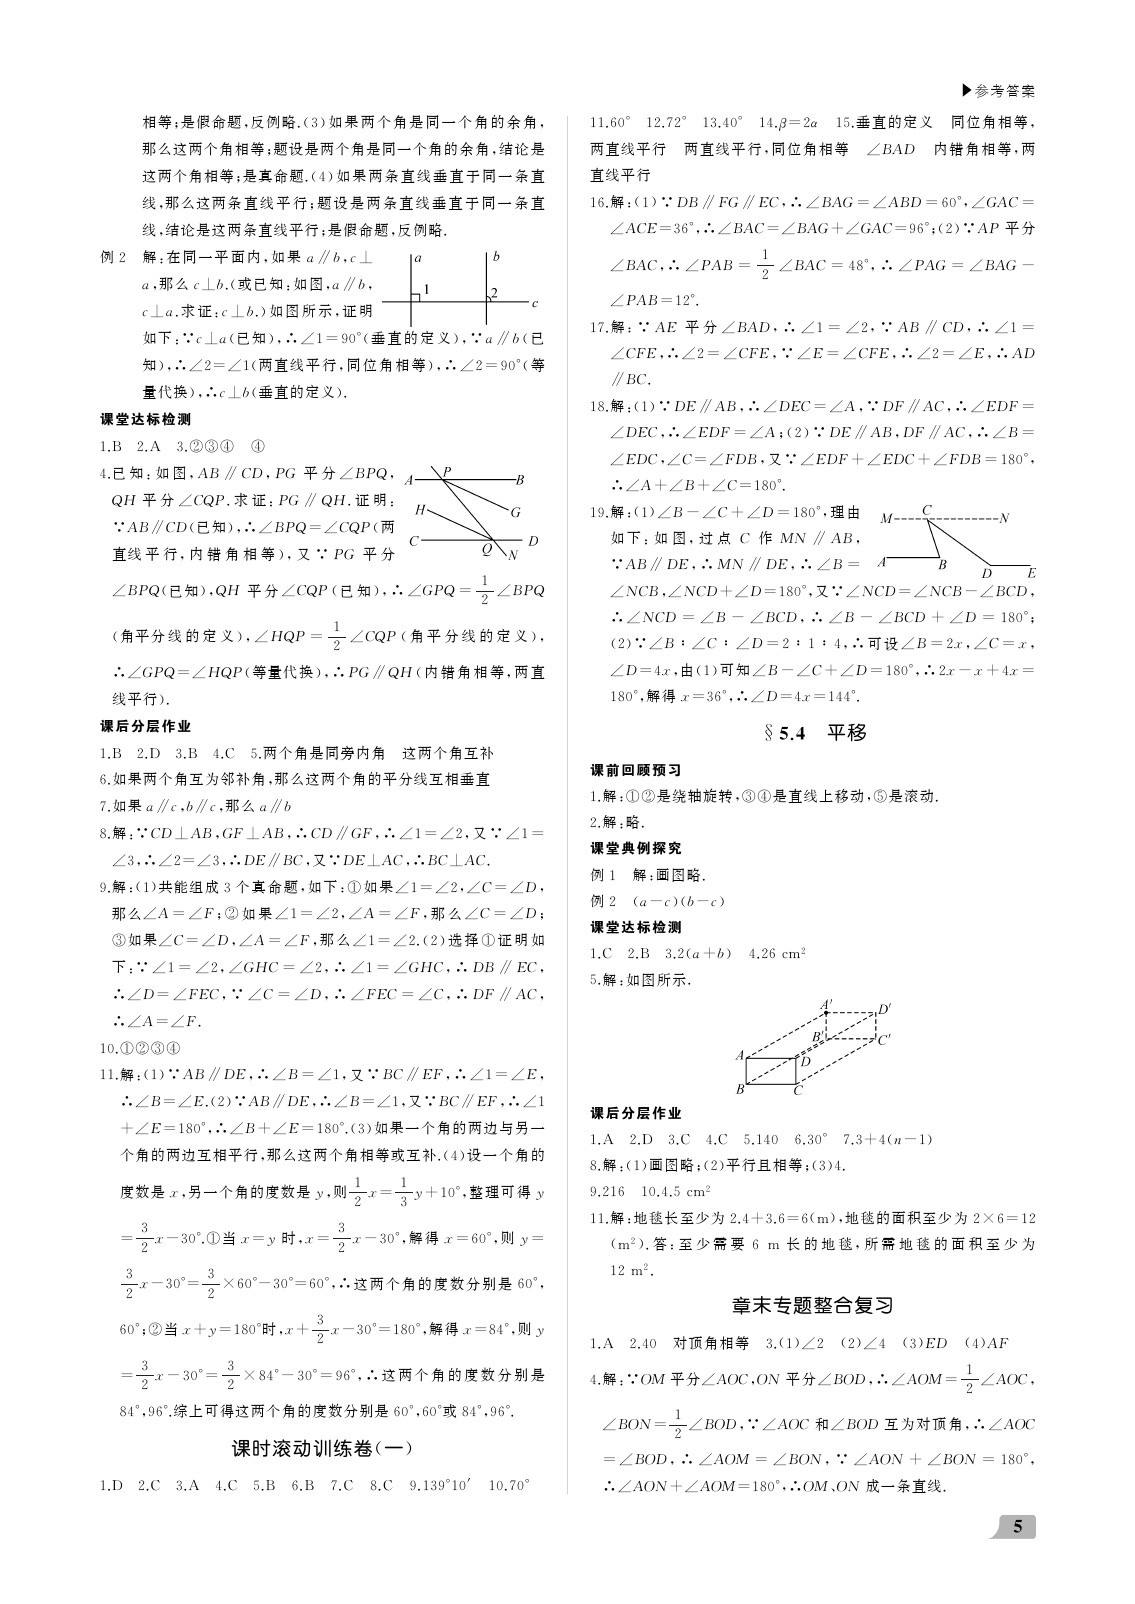 ▶参考答案
相等;是假命题,反例略.(3)如果两个角是同一个角的余角,
那么这两个角相等;题设是两个角是同一个角的余角,结论是
这两个角相等;是真命题.(4)如果两条直线垂直于同一条直
线,那么这两条直线平行;题设是两条直线垂直于同一条直
线,结论是这两条直线平行;是假命题,反例略.
例2 解:在同一平面内,如果a∥b,c⊥
a,那么c⊥b.(或已知:如图,a∥b,
c⊥a.求证:c⊥b.)如图所示,证明
a b 1 2 c
如下:∵c⊥a(已知),∴∠1=90°(垂直的定义),∵a∥b(已
知),∴∠2=∠1(两直线平行,同位角相等),∴∠2=90°(等
量代换),∴c⊥b(垂直的定义).
课堂达标检测
1.B 2.A 3.②③④ ④
4.已知:如图,AB∥CD,PG平分∠BPQ,
QH平分∠CQP.求证:PG∥QH.证明:
∵AB∥CD(已知),∴∠BPQ=∠CQP(两
直线平行,内错角相等),又∵PG平分
A P B H G C Q N D
∠BPQ(已知),QH平分∠CQP(已知),∴∠GPQ=1/2∠BPQ
(角平分线的定义),∠HQP=1/2∠CQP(角平分线的定义),
∴∠GPQ=∠HQP(等量代换),∴PG∥QH(内错角相等,两直
线平行).
课后分层作业
1.B 2.D 3.B 4.C 5.两个角是同旁内角 这两个角互补
6.如果两个角互为邻补角,那么这两个角的平分线互相垂直
7.如果a∥c,b∥c,那么a∥b
8.解:∵CD⊥AB,GF⊥AB,∴CD∥GF,∴∠1=∠2,又∵∠1=
∠3,∴∠2=∠3,∴DE∥BC,又∵DE⊥AC,∴BC⊥AC.
9.解:(1)共能组成3个真命题,如下:①如果∠1=∠2,∠C=∠D,
那么∠A=∠F;②如果∠1=∠2,∠A=∠F,那么∠C=∠D;
③如果∠C=∠D,∠A=∠F,那么∠1=∠2.(2)选择①证明如
下:∵∠1=∠2,∠GHC=∠2,∴∠1=∠GHC,∴DB∥EC,
∴∠D=∠FEC,∵∠C=∠D,∴∠FEC=∠C,∴DF∥AC,
∴∠A=∠F.
10.①②③④
11.解:(1)∵AB∥DE,∴∠B=∠1,又∵BC∥EF,∴∠1=∠E,
∴∠B=∠E.(2)∵AB∥DE,∴∠B=∠1,又∵BC∥EF,∴∠1
+∠E=180°,∴∠B+∠E=180°.(3)如果一个角的两边与另一
个角的两边互相平行,那么这两个角相等或互补.(4)设一个角的
度数是x,另一个角的度数是y,则1/2x=1/3y+10°,整理可得y
=3/2x-30°.①当x=y时,x=3/2x-30°,解得x=60°,则y=
3/2x-30°=3/2×60°-30°=60°,∴这两个角的度数分别是60°,
60°;②当x+y=180°时,x+3/2x-30°=180°,解得x=84°,则y
=3/2x-30°=3/2×84°-30°=96°,∴这两个角的度数分别是
84°,96°.综上可得这两个角的度数分别是60°,60°或84°,96°.
课时滚动训练卷(一)
1.D 2.C 3.A 4.C 5.B 6.B 7.C 8.C 9.139°10′ 10.70°
11.60° 12.72° 13.40° 14.β=2α 15.垂直的定义 同位角相等,
两直线平行 两直线平行,同位角相等 ∠BAD 内错角相等,两
直线平行
16.解:(1)∵DB∥FG∥EC,∴∠BAG=∠ABD=60°,∠GAC=
∠ACE=36°,∴∠BAC=∠BAG+∠GAC=96°;(2)∵AP平分
∠BAC,∴∠PAB=1/2∠BAC=48°,∴∠PAG=∠BAG-
∠PAB=12°.
17.解:∵AE平分∠BAD,∴∠1=∠2,∵AB∥CD,∴∠1=
∠CFE,∴∠2=∠CFE,∵∠E=∠CFE,∴∠2=∠E,∴AD
∥BC.
18.解:(1)∵DE∥AB,∴∠DEC=∠A,∵DF∥AC,∴∠EDF=
∠DEC,∴∠EDF=∠A;(2)∵DE∥AB,DF∥AC,∴∠B=
∠EDC,∠C=∠FDB,又∵∠EDF+∠EDC+∠FDB=180°,
∴∠A+∠B+∠C=180°.
19.解:(1)∠B-∠C+∠D=180°,理由
如下:如图,过点C作MN∥AB,
∵AB∥DE,∴MN∥DE,∴∠B=
M C N A B D E
∠NCB,∠NCD+∠D=180°,又∵∠NCD=∠NCB-∠BCD,
∴∠NCD=∠B-∠BCD,∴∠B-∠BCD+∠D=180°;
(2)∵∠B∶∠C∶∠D=2∶1∶4,∴可设∠B=2x,∠C=x,
∠D=4x,由(1)可知∠B-∠C+∠D=180°,∴2x-x+4x=
180°,解得x=36°,∴∠D=4x=144°.
§5.4 平移
课前回顾预习
1.解:①②是绕轴旋转,③④是直线上移动,⑤是滚动.
2.解:略.
课堂典例探究
例1 解:画图略.
例2 (a-c)(b-c)
课堂达标检测
1.C 2.B 3.2(a+b) 4.26 cm²
5.解:如图所示.
A′ D′ B′ C′ A D B C
课后分层作业
1.A 2.D 3.C 4.C 5.140 6.30° 7.3+4(n-1)
8.解:(1)画图略;(2)平行且相等;(3)4.
9.216 10.4.5 cm²
11.解:地毯长至少为2.4+3.6=6(m),地毯的面积至少为2×6=12
(m²).答:至少需要6 m长的地毯,所需地毯的面积至少为
12 m².
章末专题整合复习
1.A 2.40 对顶角相等 3.(1)∠2 (2)∠4 (3)ED (4)AF
4.解:∵OM平分∠AOC,ON平分∠BOD,∴∠AOM=1/2∠AOC,
∠BON=1/2∠BOD,∵∠AOC和∠BOD互为对顶角,∴∠AOC
=∠BOD,∴∠AOM=∠BON,∵∠AON+∠BON=180°,
∴∠AON+∠AOM=180°,∴OM、ON成一条直线.
5